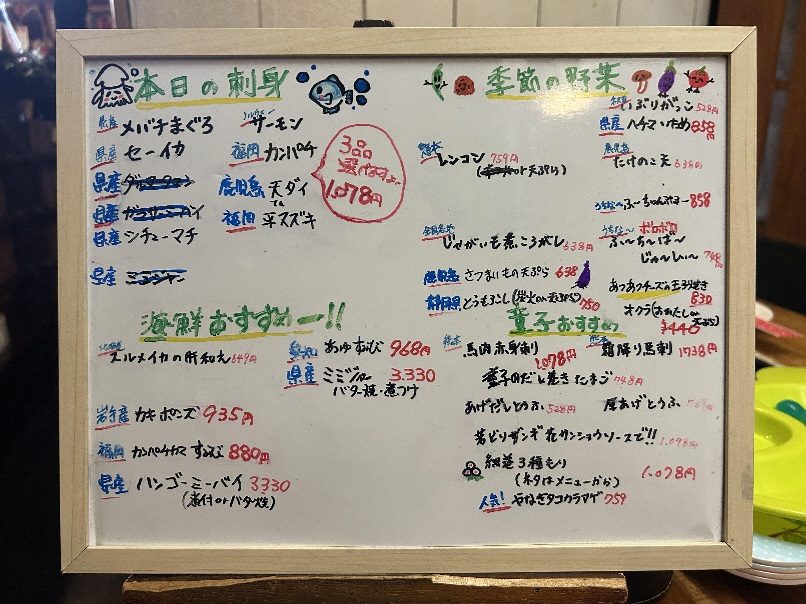 本日の刺身
県産 メバチまぐろ
県産 セーイカ
県産
県産
県産 シチューマチ
県産 ミミジャー
サーモン
福岡 カンパチ
鹿児島 天ダイ
福岡 平スズキ
3品
選べますよ〜
1,078円
季節の野菜
いぶりがっこ 528円
県産 ヘチマいため 858円
レンコン 759円
(or天ぷら)
鹿児島
たけのこ天 638円
うちな〜 ふ〜ちゃんぷる〜 858
じゃがいも煮ころがし 638円
うちな〜 ボロボロ
ふ〜ち〜ば〜
じゅ〜しぃ〜 748円
鹿児島 さつまいもの天ぷら 638
静岡県 とうもろこし(炭火or天ぷら) 750
あつあつチーズの玉子焼き
830
オクラ(おひたしor天ぷら)
¥440
海鮮おすすめー!!
スルメイカの肝和え 649円
愛知 あゆすがた 968円
県産 ミミジャー 3.330
バター焼・煮つけ
岩手産 カキポンズ 935円
福岡 カンパチカマ 880円
県産 ハンゴーミーバイ 3330
(煮付orバター焼)
童子おすすめ
熊本 馬肉赤身刺 1,078円
熊本 霜降り馬刺 1738円
童子のだし巻きたまご 748円
あげだしとうふ 528円
厚あげとうふ
若どりザンギ 花サンショウソースで!! 1,078円
3種もり 1,078円
(ネタはメニューから)
人気! やなぎタコカラアゲ 759